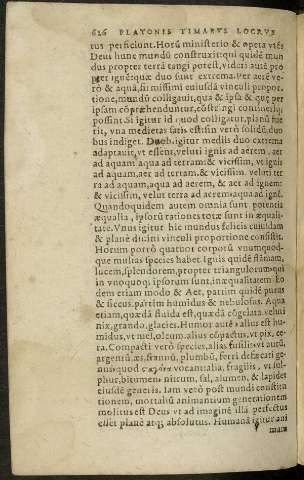 626 PLATONIS TIMAEVS LOCRVS
tus perficiunt. Horū ministerio & opera vīcēs
Deus hunc mundū construxit: qui quidē mun
dus propter terrā tangi potest, videri autē pro
pter ignē: quæ duo sunt extrema. Per aerē ve-
rò & aquā, firmissimi cuiusdā vinculi propor-
tione, mundū colligauit, quæ & ipsa & quæ per
ipsam cōprehenduntur, cōstringi continetiq;
possint. Si igitur id quod colligatur, planū fue
rit, vna medietas satis est: sin verò solidū, duo
bus indiget. Duob. igitur mediis duo extrema
adaptauit, vt essent, veluti ignis ad aerem, aer
ad aquam: aqua ad terram: & vicissim, vt ignis
ad aquam, aer ad terram. & vicissim. veluti ter
ra ad aquam, aqua ad aerem, & aer ad ignem:
& vicissim, velut terra ad aerem, aqua ad ignē.
Quandoquidem autem omnia sunt potentia
æqualia, ipsorū rationes totæ sunt in æquali-
tate. Vnus igitur hic mundus felicis cuiusdam
& planè diuini vinculi proportione consistit.
Horum porrò quatuor corporū vnumquod-
que multas species habet. Ignis quidē flāmam,
lucem, splendorem, propter triangulorum qui
in vnoquoq; ipsorum sunt, inæqualitatem. Eo
dem etiam modo & Aer, partim quidē purus
& siccus, partim humidus & nebulosus. Aqua
etiam, quædā fluida est, quædā cōgelata. veluti
nix, grando, glacies. Humor autē alius est hu-
midus, vt mel, oleum. alius cōpactus, vt pix, ce-
ra. Compacti verò species, alia: fusilis: vt aurū,
argentū, æs, stannū, plumbū, ferri defæcati ge-
nus quod vocant: alia, fragilis, vt sul-
phur, bitumen, nitrum, sal, alumen, & lapides
eiusdē generis. Iam verò post mundi constitu
tionem, mortaliū animantium generationem
molitus est Deus vt ad imaginē illā perfectus
esset planè atq; absolutus. Humanā igitur ani
mam